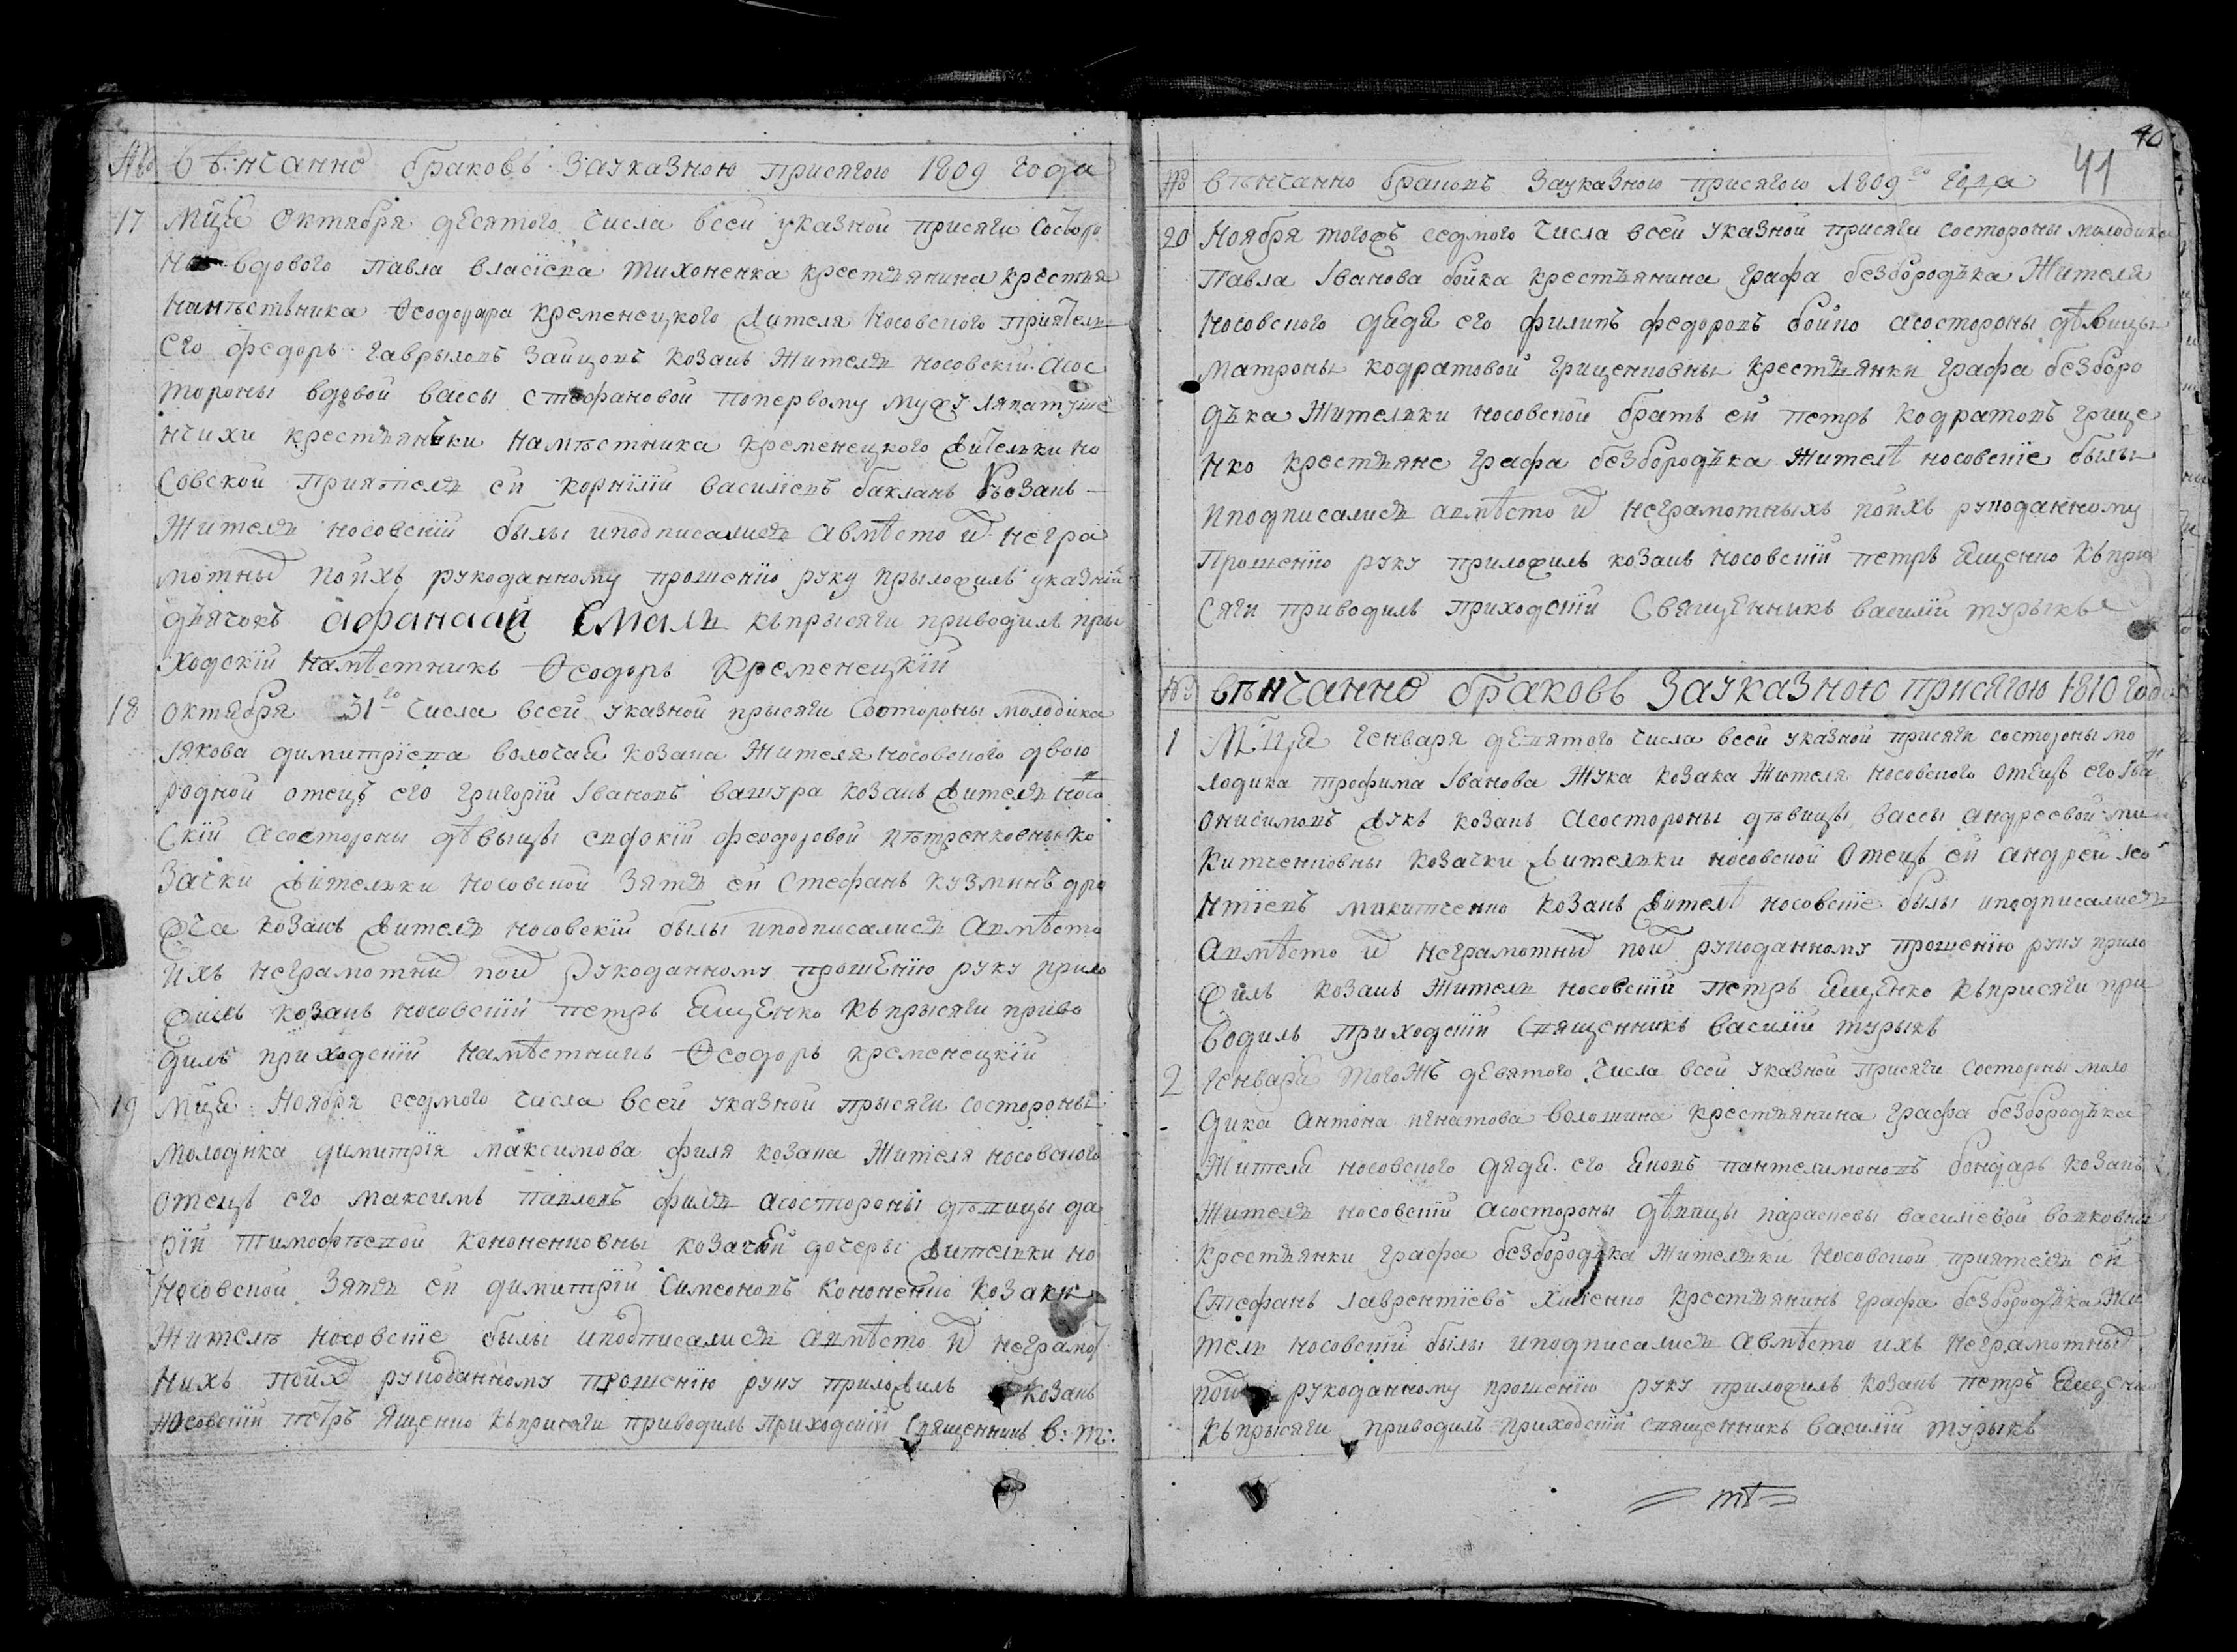 № Вѣнчанно браковъ Зауказною присягою 1809 года
17 Мца Октября десятого числа всей указной присяги Состоро
ны вдового Павла власіева тихоненка крестъянина крестья
намѣстъника Ѳеодора кременецкого жителя Носовского Приятель
его федоръ гаврыловъ зайцовъ козакъ Жителъ носовскій. Асос
тороны вдовой вассы стефановой попервому мужу
нчихи крестъянъки намѣстника кременецкого жителки но
совской Приятель ей корнілій василіевъ бакланъ козакъ
Жителъ носовскій былы иподписалисъ авмѣсто ихъ негра
мотных поихъ рукоданному прошенію руку прыложилъ указній
дъячокъ афанасій Смаль къпрысяги приводилъ при
ходскій намѣстникъ Ѳеодоръ Кременецкій
18 октября 31го числа всей указной прысяги Состороны молодика
Іякова димитріева волочай козака Жителя носовского двою
родной отецъ его григорій Івановъ вашура козакъ жителъ носов
скій асостороны дѣвыцы евфокій феодоровой пѣтренковны ко
зачки жителъки носовской зятъ ей Стефанъ кузминъ
козакъ жителъ носовскій былы иподписалисъ авмѣсто
ихъ неграмотних поих рукоданному прошенію руку прило
жилъ козакъ носовскій петръ Ященко къпрысяги приво
дилъ приходскій намѣстникъ Ѳеодоръ кременецкій
19 Мца Ноября седмого числа всей указной прысяги состороны
молодика димитрія максимова филя козака Жителя носовского
отецъ его максимъ павловъ филъ асостороны дѣвицы да
рій тимофѣевой кононенковны козачей дочеры жителъки но
носовской зятъ ей димитрій Симеоновъ кононенко козаки
Жителѣ носовскіе былы иподписалисъ авмѣсто их неграмот
нихъ поих рукоданному прошенію руку приложилъ козакъ
носовскій петръ Ященко къприсяги приводилъ Приходскій Священникъ В: Т:
40
41
№ вѣнчанно браковъ Зауказною присягою 1809го года
20 Ноября тогожъ седмого числа всей указной присяги состороны молодика
Павла Іванова бойка крестъянина графа безбородъка Жителя
носовского дядя его филипъ федоровъ бойко асостороны дѣвицы
матроны кодратовой грищенковны крестъянки графа безборо
дъка Жителъки носовской братъ ей петръ кодратовъ грище
нко крестъяне графа безбородъка Жителѣ носовскіе былы
иподписалисъ авмѣсто их неграмотныхъ поихъ рукоданному
Прошенію руку приложилъ козакъ носовскій петръ Ященко къпри
сяги приводилъ Приходскій Священникъ василій турыкъ
№ вѣнчанно браковъ Зауказною присягою 1810 года
1 Мца Генваря девятого числа всей указной присяги состороны мо
лодика трофима Іванова Жука козака Жителя носовского отецъ его Іван
онисимовъ жукъ козакъ асостороны дѣвицы вассы андреевой ми
китченковны козачки жителъки носовской отецъ ей андрей лео
нтіевъ микитченко козакъ жителѣ носовскіе былы иподписалисъ
авмѣсто их неграмотных поих рукоданному прошенію руку прило
жилъ козакъ Жителъ носовскій петръ Ященко къприсяги при
водилъ приходскій Священникъ василій турыкъ
2 Генваря тогоЖъ девятого числа всей указной Присяги состороны моло
дика антона игнатова волошина крестъянина графа безбородъка
Жителя носовского дядя его яковъ пантелимоновъ бондарь козакъ
Жителъ носовскій асостороны дѣвицы параскевы василіевой волковны
крестъянки графа безбородъка Жителъки носовской приятель ей
Стефанъ лаврентіевъ хименко крестъянинъ графа безбородъка Жи
телъ носовскій былы иподписалисъ авмѣсто ихъ неграмотных
поих рукоданному прошенію руку приложилъ козакъ петръ Ященко
къпрысяги приводилъ приходскій священникъ василій турыкъ